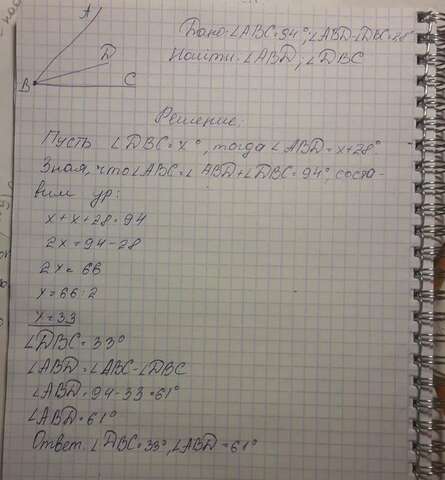 A
D
B
C
Дано: ∠ABC=94°; ∠ABD-∠DBC=28°
Найти: ∠ABD; ∠DBC
Решение:
Пусть ∠DBC=x°, тогда ∠ABD=x+28°
Зная, что ∠ABC=∠ABD+∠DBC=94°, соста-
вим ур:
x+x+28=94
2x=94-28
2x=66
x=66:2
x=33
∠DBC=33°
∠ABD=∠ABC-∠DBC
∠ABD=94-33=61°
∠ABD=61°
Ответ: ∠DBC=33°, ∠ABD=61°